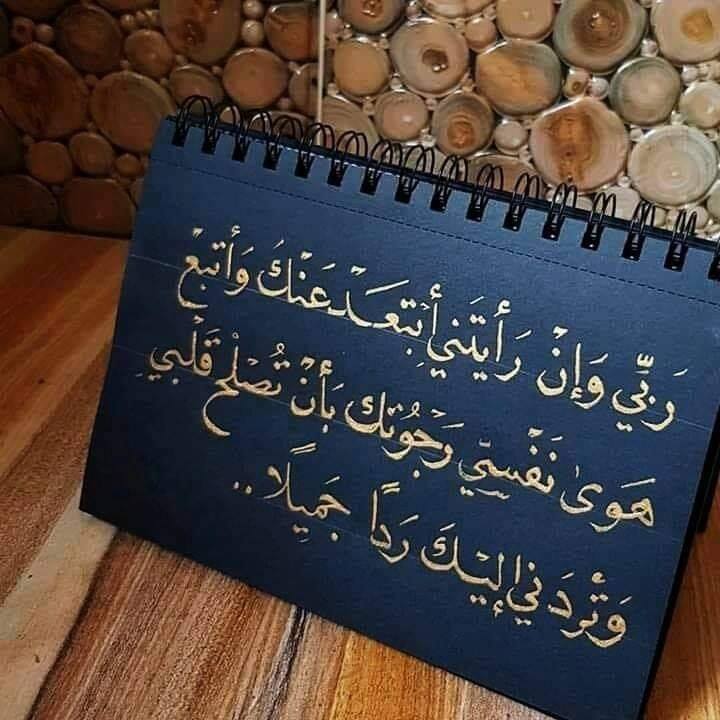 رَبِّي وَإنْ رَأيتَني أبتعَدْ عَنْكُ وَأتبعْ
هَوىٰ نَفْسيِّ رَجوُتكَ بَأنْ تُصْلحْ قَلْبيِ
وَتْردَني إليْكَ رَدًا جَميِلًا ..